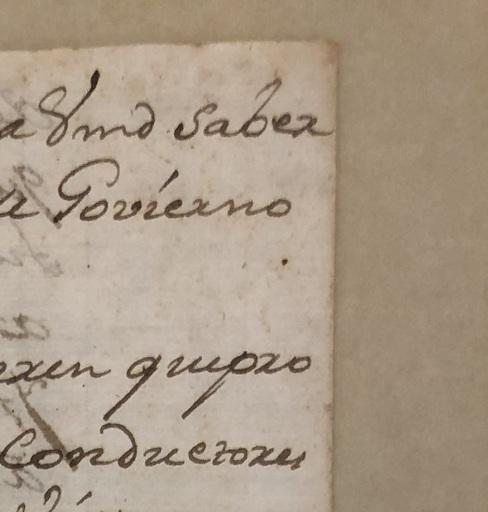 a Vmd saber
Govierno
quepro
Conductores